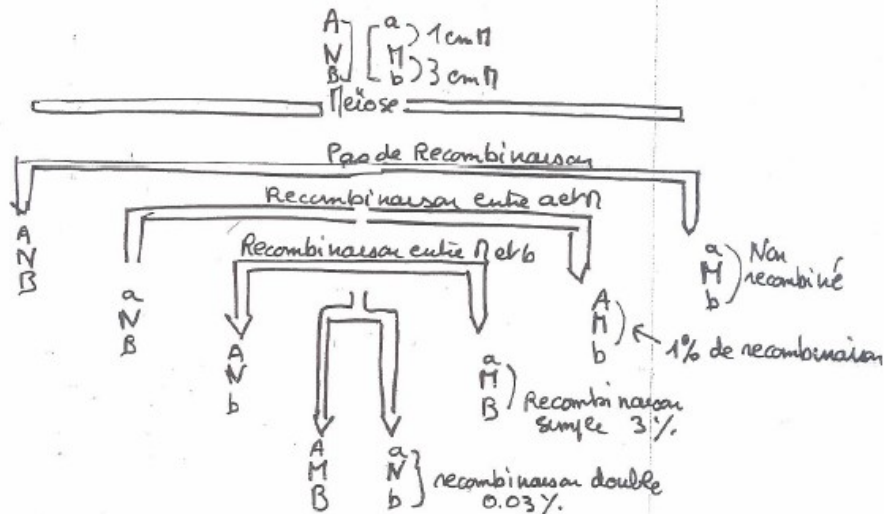 A a
N M ) 1 cm M
B b ) 3 cm M
Meïose
Pas de Recombinaison
Recombinaison entre a et M
Recombinaison entre M et b
A
N
B
a
N
B
A
N
b
A
M
B
a
N
b
recombinaison double
0.03 %.
a
M
B
Recombinaison
simple 3 %.
A
M
b
1% de recombinaison
a
M
b
Non
recombiné